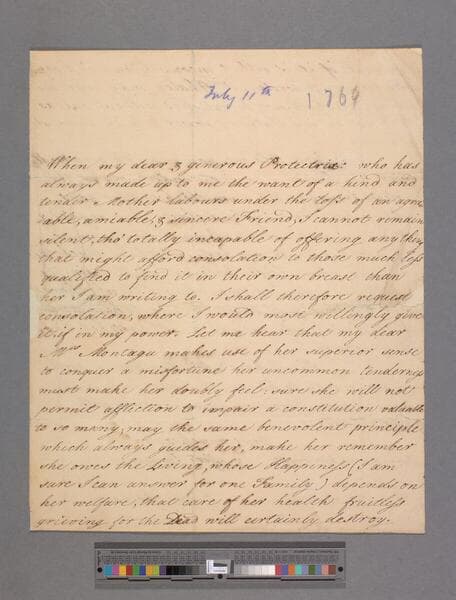 July 11th 1764
When my dear & generous Protectrix who has
always made up to me the want of a kind and
tender Mother labours under the loss of an agre
able, amiable, & sincere Friend, I cannot remain
silent, tho' totally incapable of offering any thing
that might afford consolation to those much less
qualified to find it in their own breast than
her I am writing to. I shall therefore request
consolation, where I would most willingly give
it if in my power. Let me hear that my dear
Mrs Montagu makes use of her superior sense
to conquer a misfortune her uncommon tenderness
must make her doubly feel: sure she will not
permit affliction to impair a constitution valuable
to so many; may the same benevolent principle
which always guides her, make her remember
she owes the Living, whose Happiness (I am
sure I can answer for one Family) depends on
her welfare, that care of her health fruitless
grieving for the Dead will certainly destroy.